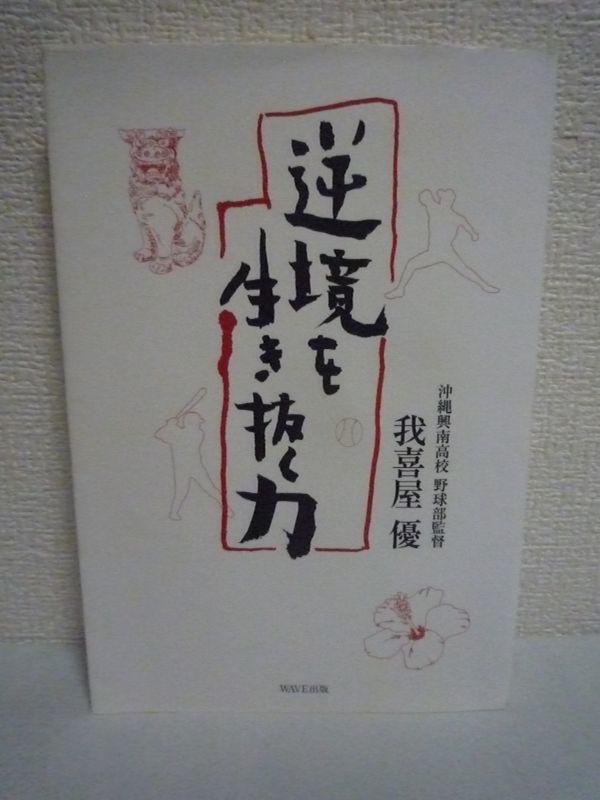 逆境を
生き抜く力
沖縄興南高校 野球部監督
我喜屋 優
WAVE出版